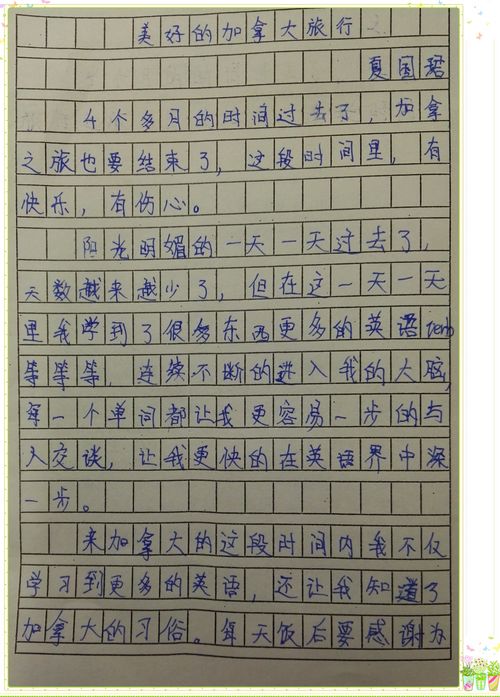 美好的加拿大旅行
夏国珺
4个多月的时间过去了，加拿
之旅也要结束了，这段时间里，有
快乐，有伤心。
阳光明媚的一天一天过去了，
天数越来越少了，但在这一天一天
里我学到了很多东西更多的英语
等等等，连续不断的进入我的大脑，
每一个单词都让我更容易一步的与
人交谈，让我更快的在英语界中深
一步。
来加拿大的这段时间内我不仅
学习到更多的英语，还让我知道了
加拿大的习俗。每天饭后要感谢为